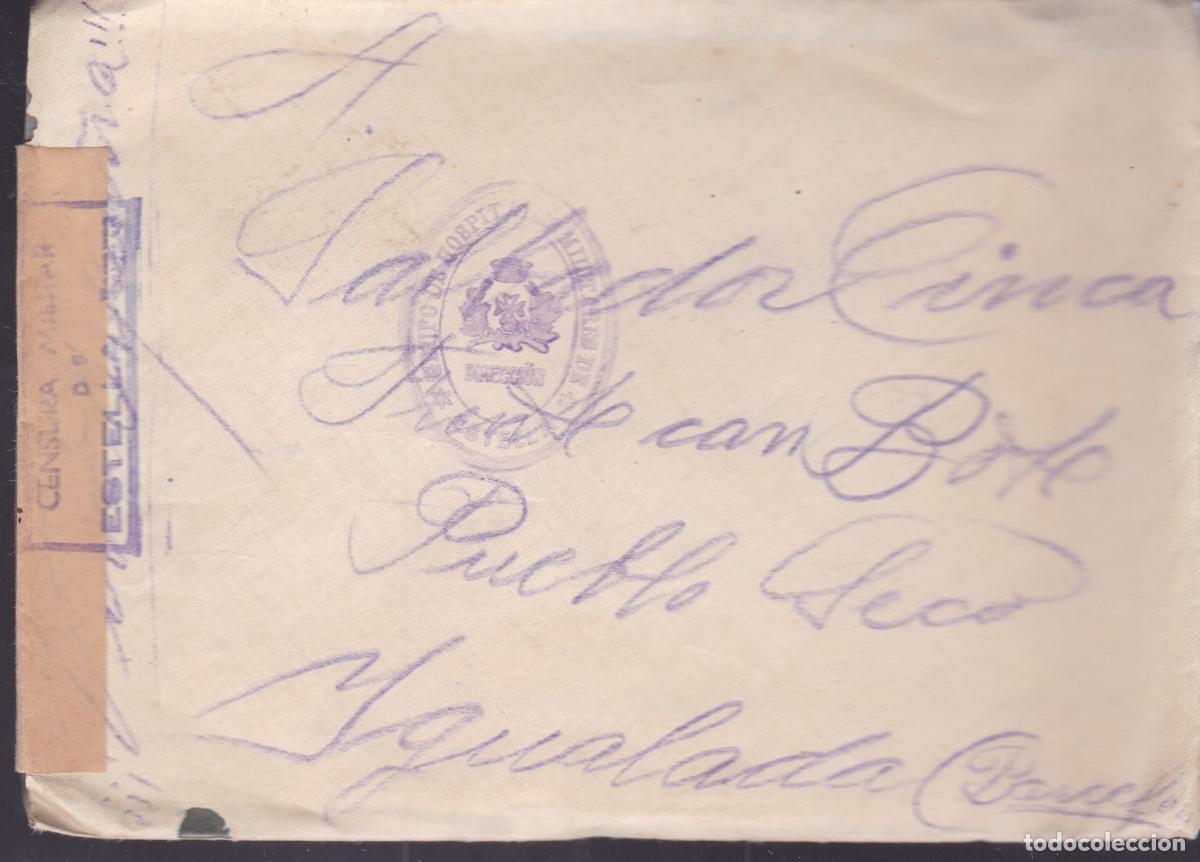 A.
Salvador Cinca
Frente can Bote
Pueblo Seco
Ygualada (Barcel
GRUPO DE HOSPIT MILITARES DE
DIRECCIÓN
CENSURA MILITAR
ESTELLA
todocoleccion